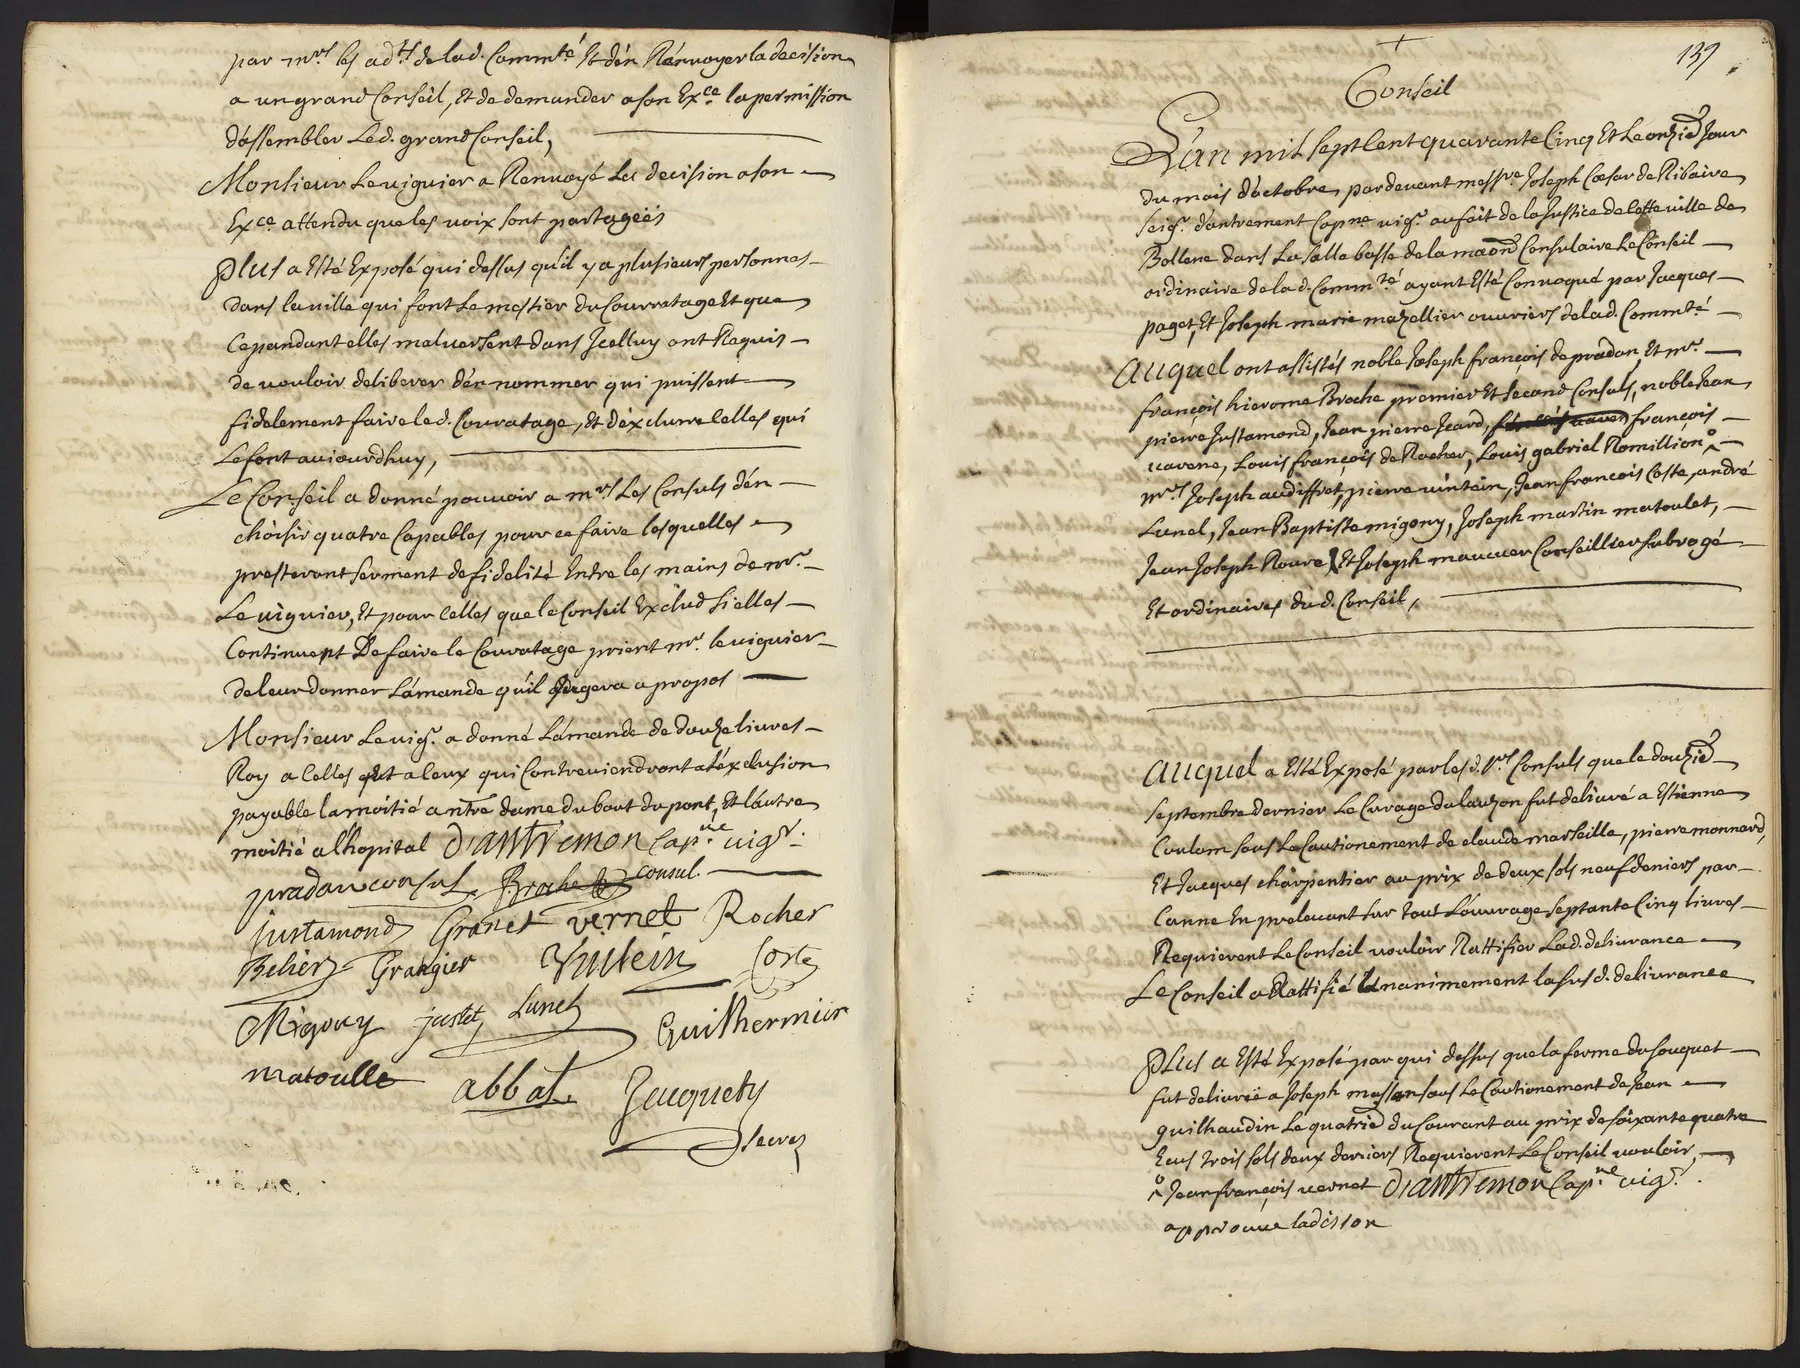 par mrs les adts de lad. Commté Et d'én Rénvoyer la decision
a un grand Conseil, Et de demander a son Exce la permission
d'assembler Led. grand Conseil,
Monsieur Le uiguier a Renuoyé La decision a son
Exce attendu que les uoix sont partageés
plus a Esté Exposé qui dessus qu'il y a plusieurs personnes
dans la uille qui font Le mestier du Courratage Et que
Cependant elles maluersent dans Jcelluy ont Requis
de uouloir deliberer d'én nommer qui puissent
fidelement faire led. Couratage, Et d'éxclurre Celles qui
Le font aujourdhuy,
Le Conseil a donné pouuoir a mrs Les Consuls d'én
choisir quatre Capables pour ce faire lesquelles
presteront serment de fidelité Entre les mains de mr.
Le uiguier, Et pour Celles que le Conseil Exclud si elles
Continuent De faire le Couratage prient mr. le uiguier
de leur donner L'amande qu'il Jugera a propos
Monsieur Le uigr. a donné L'amande de douze liures
Roy a Celles Et a Ceux qui Contreuiendront a l'éxclusion
payable la moitié a ntre dame du bout du pont, Et l'autre
moitié a l'hopital D'antremon Capne uigr.
pradon consul Broche consul.
justamond Granet vernet Rocher
Belier Grangier Vintein Coste
Migony justet Lunel Guilhermier
matoulle abbat Jacquety
secre
137
Conseil
L'an mil sept Cent quarante Cinq Et Le onzie Jour
du mois d'octobre pardeuant messre Joseph Cœsar de Ribaire
seigr. d'antremont Capne uigr. au fait de la Justice de Cette uille de
Bollene dans La salle basse de la maon Consulaire Le Conseil
ordinaire de la d. Commté ayant Esté Conuoqué par Jacques
paget, Et Joseph marie mazellier ouuriers de lad. Commté
Auquel ont assistés noble Joseph françois de pradon, Et mr.
françois hierome Broche premier Et second Consuls, noble Jean
pierre Justamond, Jean pierre Jcard, françois
uavene, Louis françois de Rocher, Louis gabriel Romillion
mrs Joseph audiffret, pierre uintein, Jean francois Coste, andré
Lunel, Jean Baptiste migony, Joseph martin matoulet,
Jean Joseph Roure, Et Joseph maucuer Conseillier subrogé
Et ordinaires du d. Conseil,
Auquel a Esté Exposé par les d. srs Consuls que le douzie
septembre dernier Le Curage du lauzon fut deliuré a Estienne
Coulom sous Le Cautionement de claude marseille, pierre monnard,
Et Jacques charpentier au prix de deux sols neuf deniers par
Canne En preleuant sur tout L'ouurage septante Cinq liures
Requierent Le Conseil uouloir Rattifier Lad. deliurance
Le Conseil a Rattifié Unanimement la sus d. deliurance
plus a Esté Exposé par qui dessus que la ferme du souquet
fut deliureé a Joseph masson sous Le Cautionement de Jean
guilhaudin Le quatrie du Courant au prix de soixante quatre
Ecus trois sols deux deniers Requierent Le Conseil uouloir,
Jean françois uernet D'antremon Capne uigr.
approuue ladission